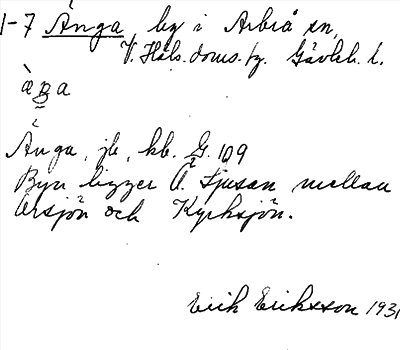 1-7 Änga, by i Arbrå sn,
V. Häls. doms. fg. Gävleb. l.
äŋa
Änga, jb, kb. G. 109
Byn ligger Ö. Ljusan mellan
Orsjön och Kyrksjön.
Erik Eriksson 1931